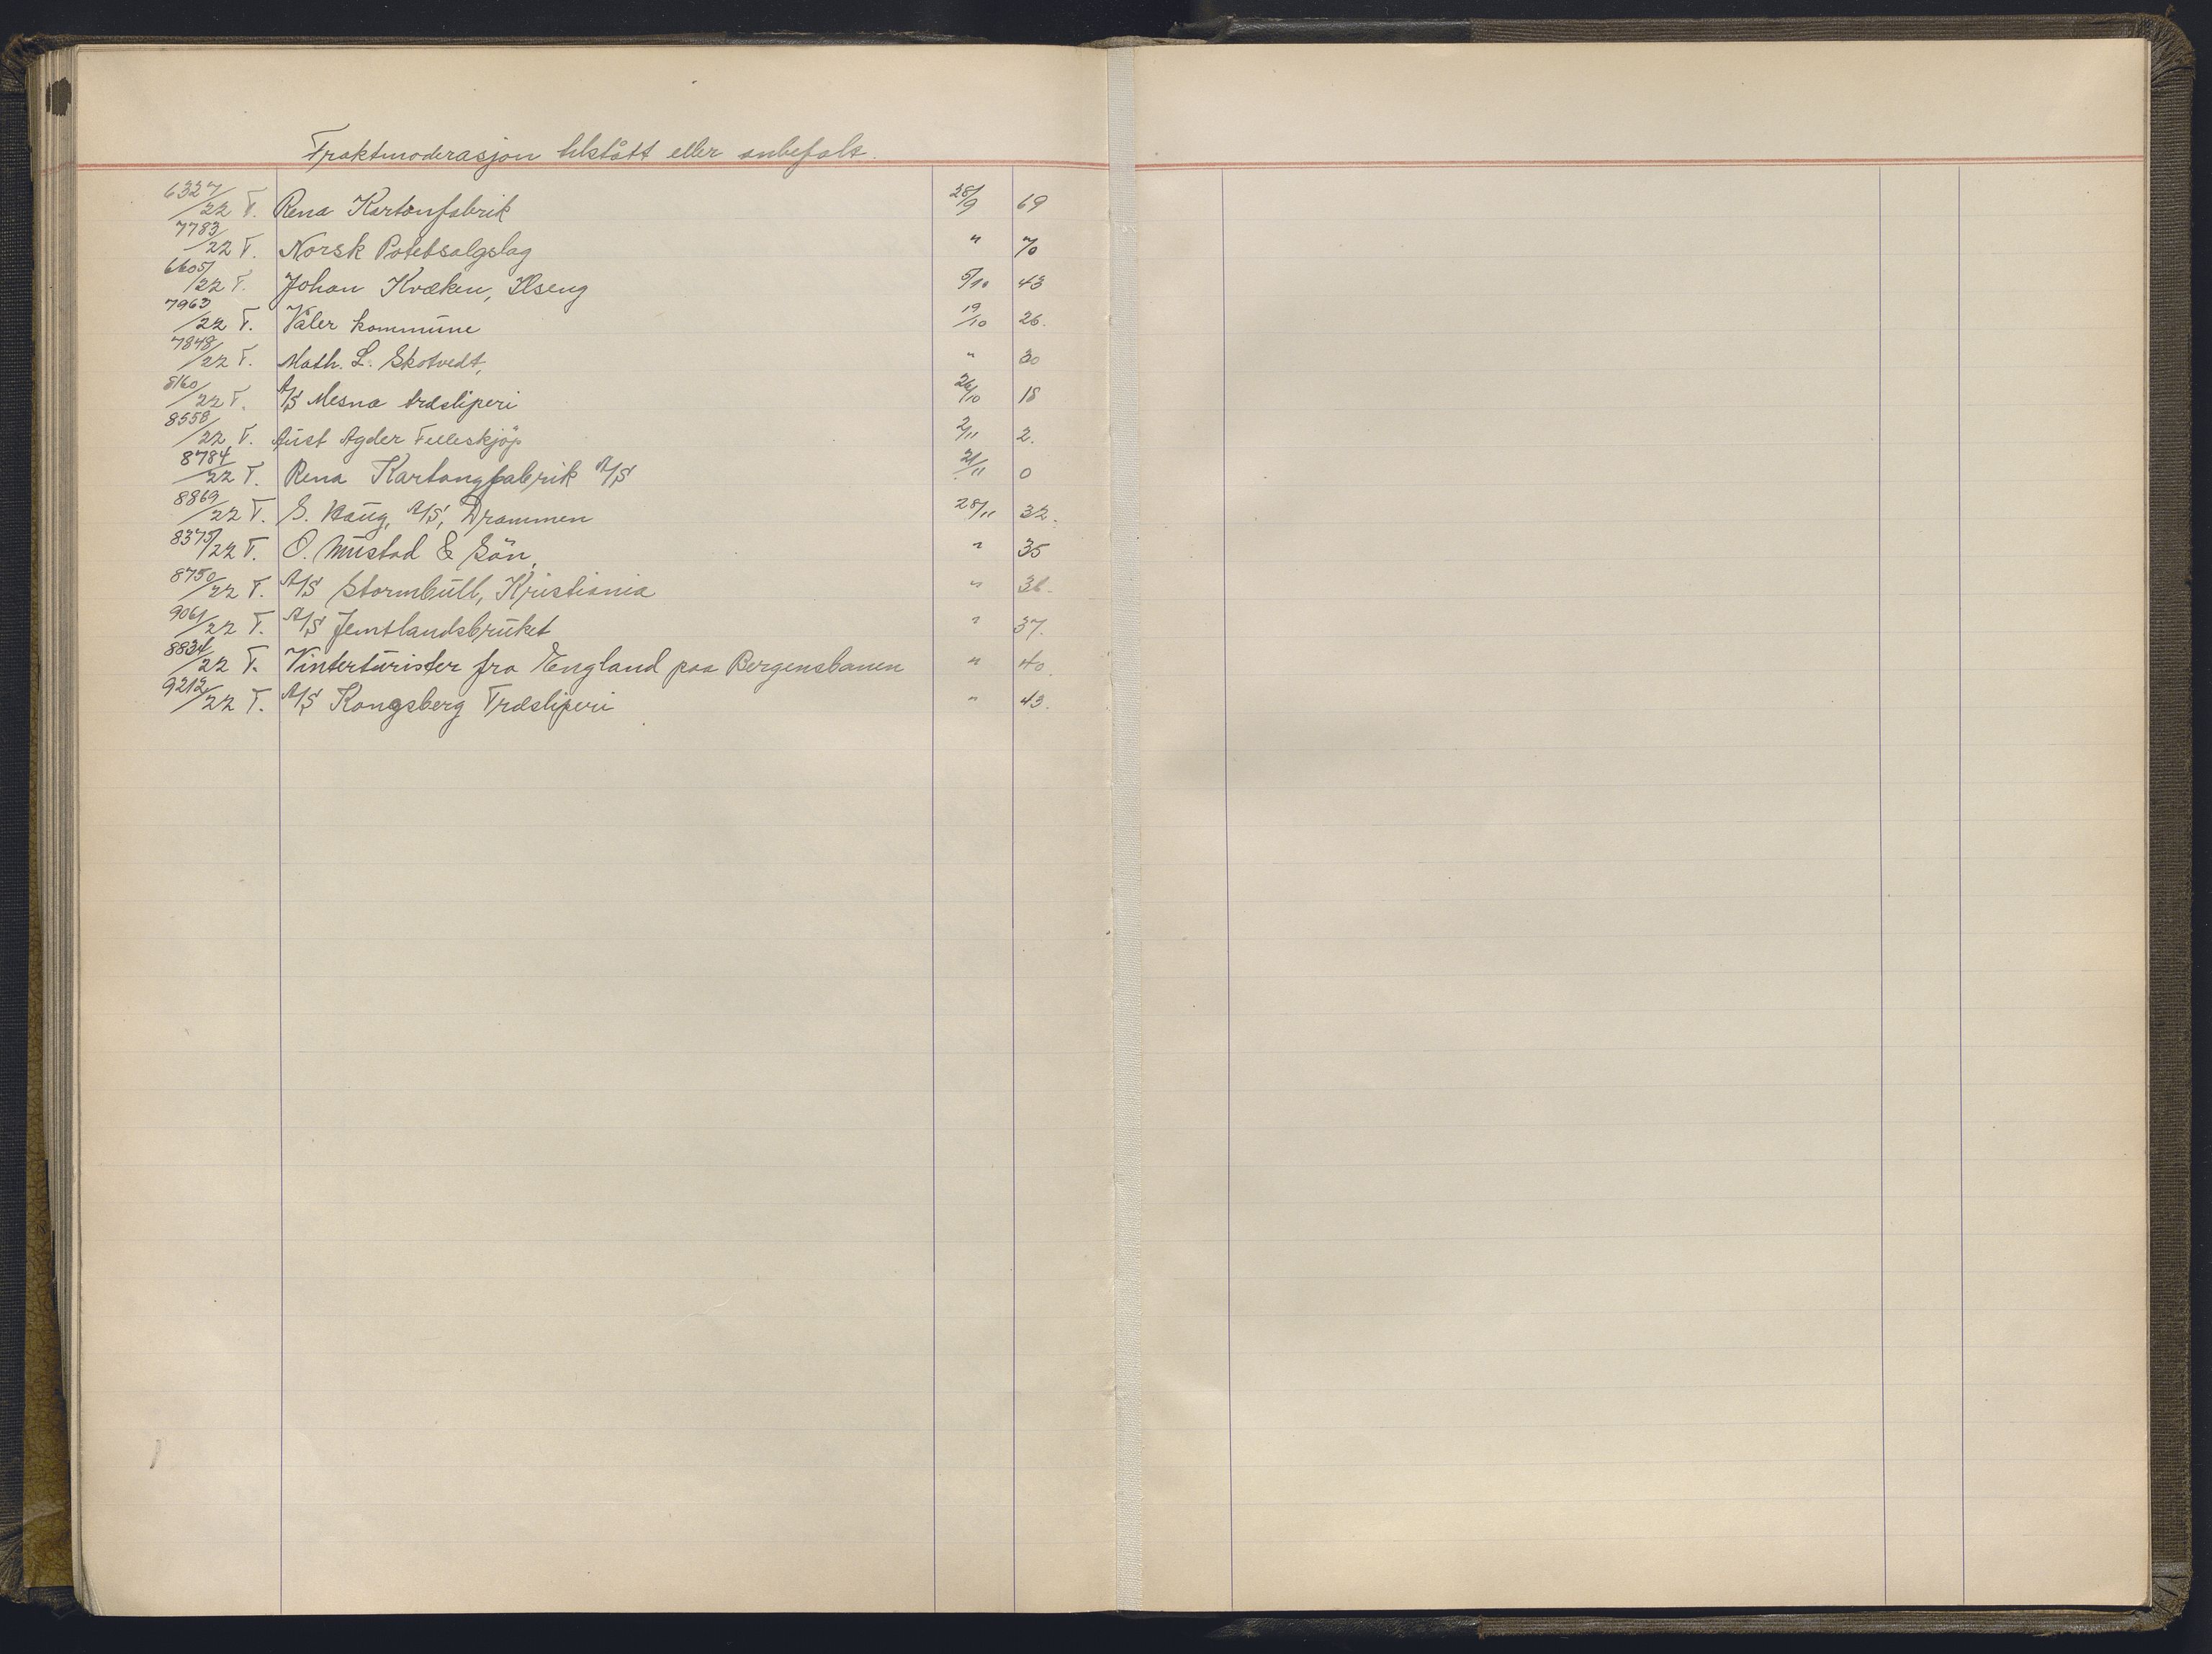 Fraktmoderasjon tilstått eller anbefalt.
6327/22 T. Rena Kartonfabrik 28/9 69
7783/22 T. Norsk Potetsalgslag " 70
6605/22 T. Johan Kvæken, Ilseng 5/10 43
7963/22 T. Våler kommune 19/10 26.
7848/22 T. Math. L. Skotvedt, " 30
8160/22 T. A/S Mesna træsliperi 26/10 18
8558/22 T. Aust Agder Felleskjöp 2/11 2.
8784/22 T. Rena Kartongfabrik A/S 21/11 0
8869/22 T. S. Haug, A/S, Drammen 28/11 32.
8375/22 T. O. Mustad & Sön, " 35
8750/22 T. A/S Stormbull, Kristiania " 36.
9061/22 T. A/S Jemtlandsbruket " 37.
8834/22 T. Vinterturister fra England paa Bergensbanen " 40.
9212/22 T. A/S Kongsberg Træsliperi " 43.